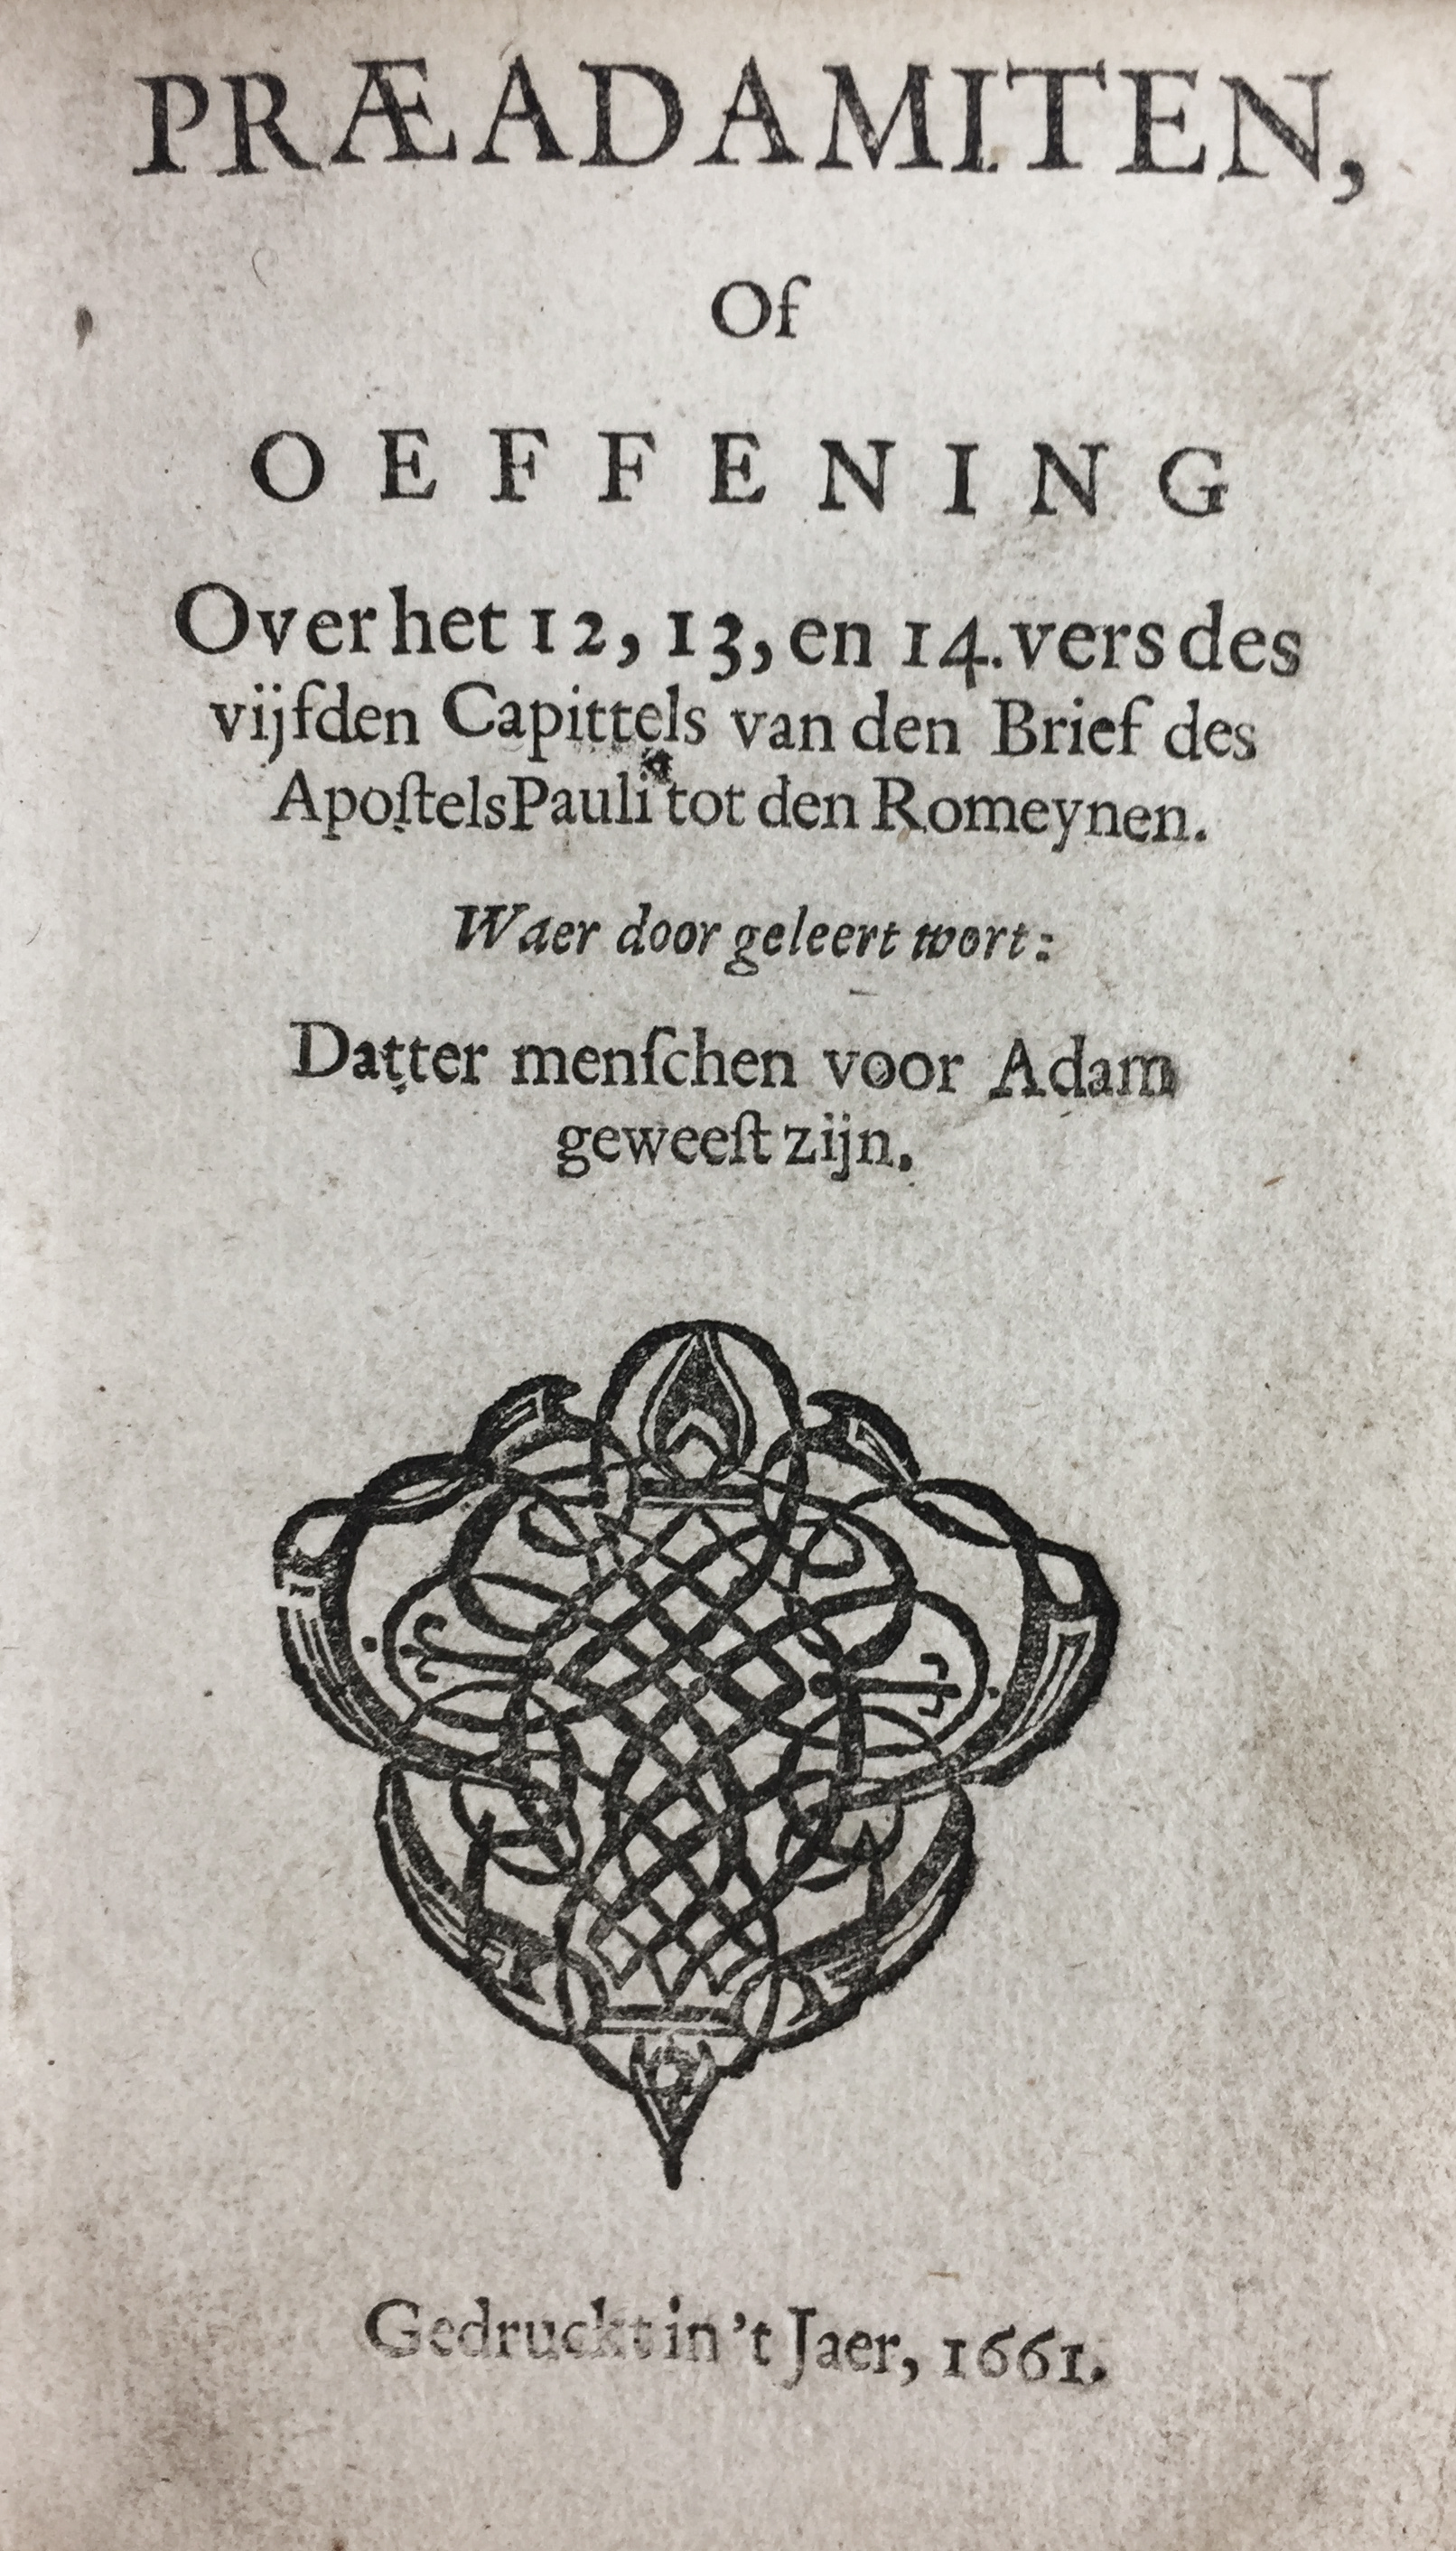 PRÆADAMITEN,
Of
OEFFENING
Over het 12, 13, en 14. vers des
vijfden Capittels van den Brief des
Apoſtels Pauli tot den Romeynen.
Waer door geleert wort:
Datter menſchen voor Adam
geweeſt zijn.
Gedruckt in 't Jaer, 1661.